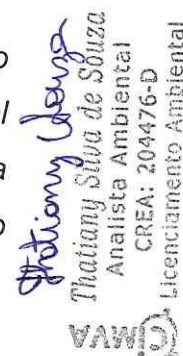 o
l
a
o
Thatiany Souza
Thatiany Silva de Souza
Analista Ambiental
CREA: 204476-D
Licenciamento Ambiental